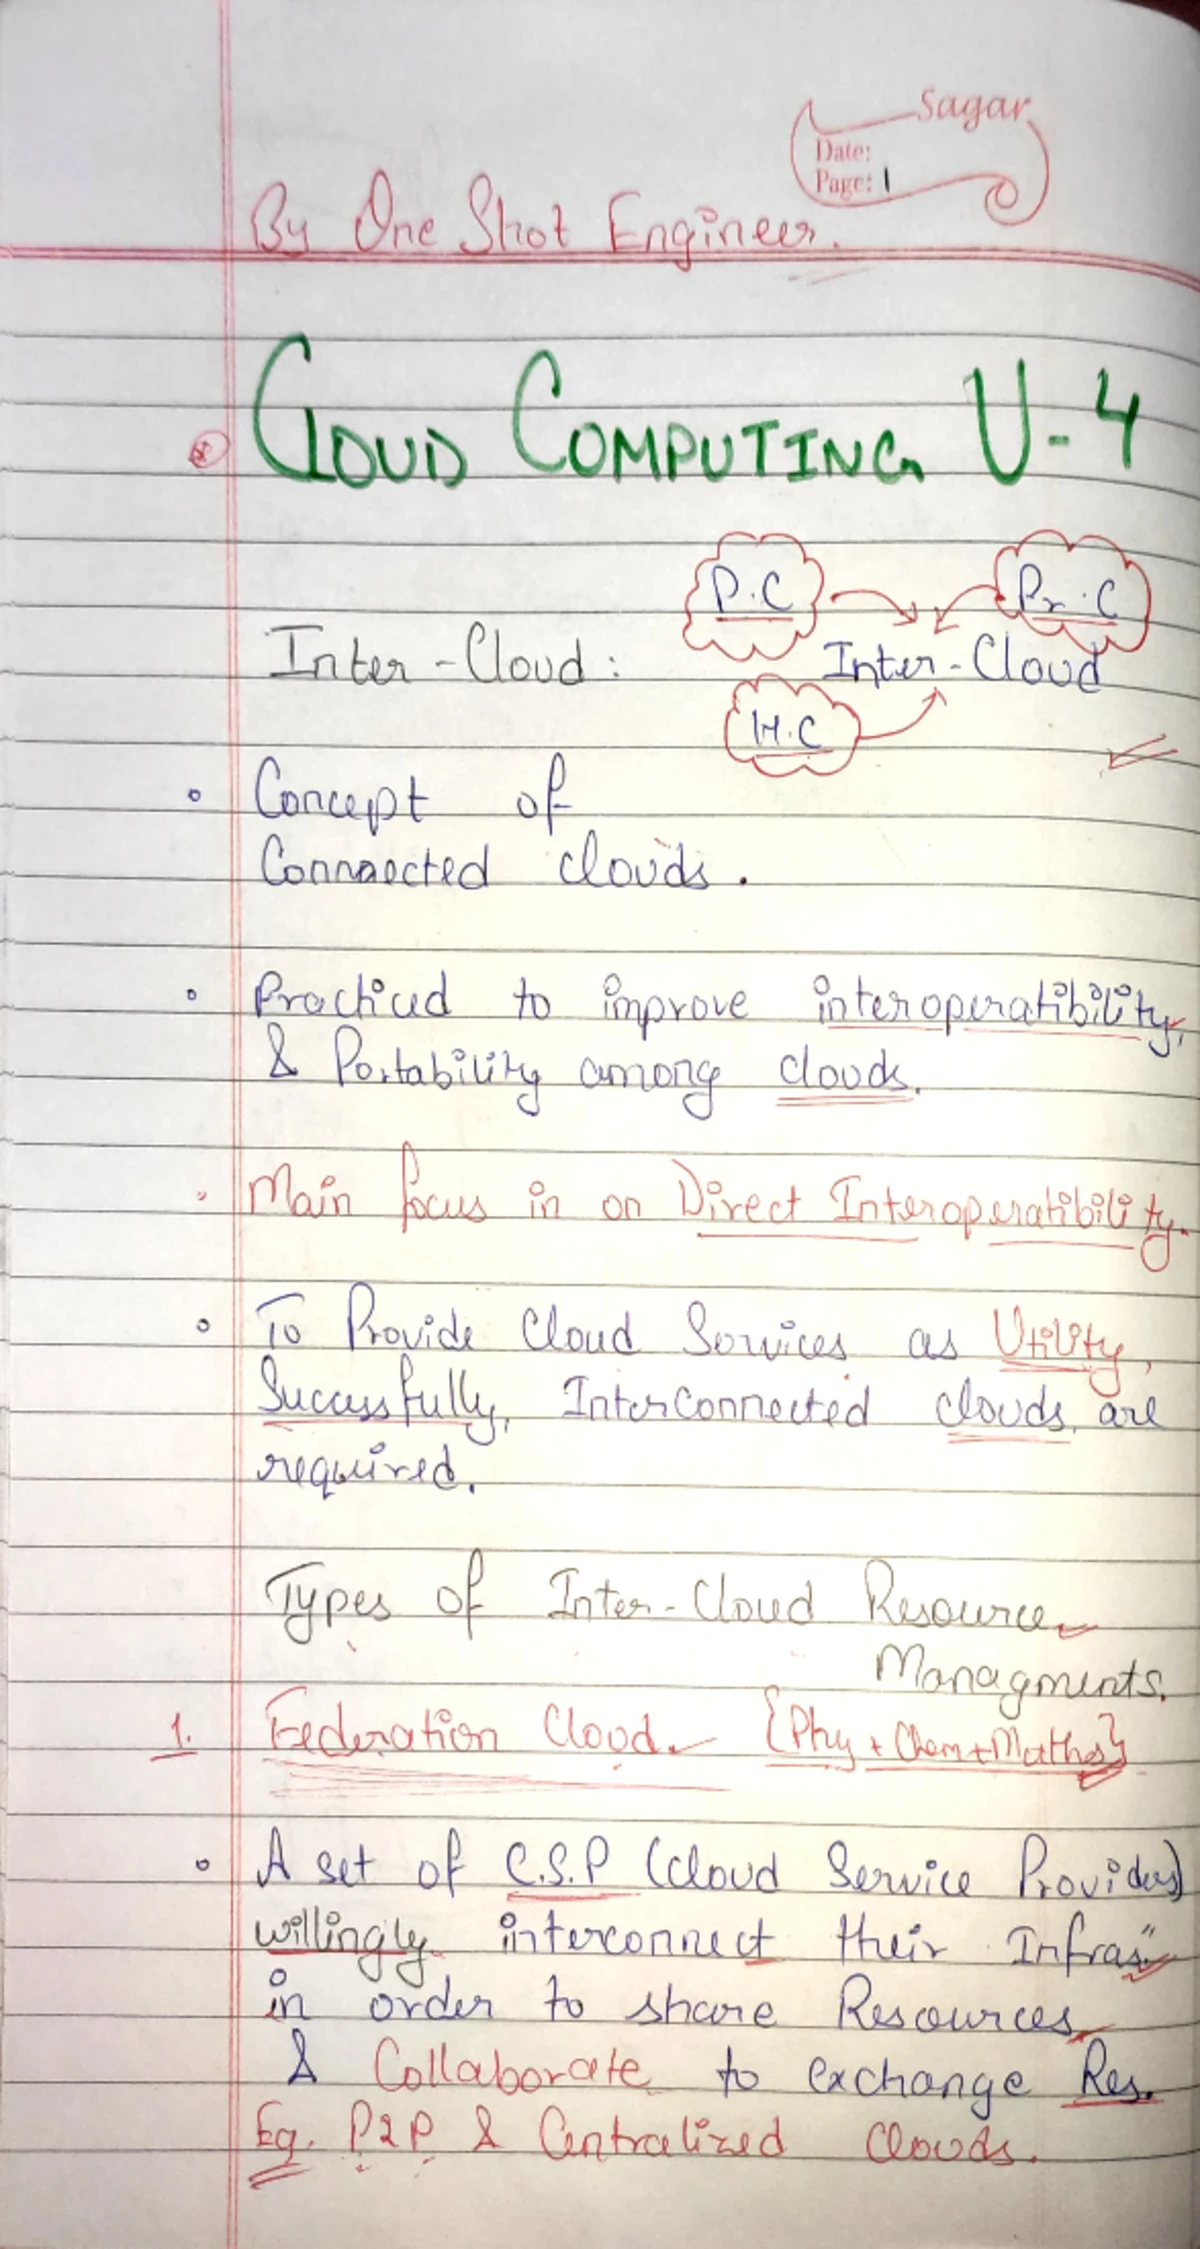 Sagar
Date:
Page: 1
By One Shot Engineer.
CLOUD COMPUTING U-4
P.C
Pr.C
Inter-Cloud:
Inter-Cloud
H.C
Concept of
Connaected clouds.
Practiced to improve interoperatibility,
& Portability among clouds.
Main focus in on Direct Interoperatibility.
To Provide Cloud Services as Utility,
Successfully, Interconnected clouds, are
required.
Types of Inter-Cloud Resource
Managments.
1. Federation Cloud. {Phy + Chem + Maths}
A set of C.S.P (Cloud Service Providers)
willingly interconnect their Infras"
in order to share Resources
& Collaborate to exchange Res.
Eg. P2P & Centralized Clouds.